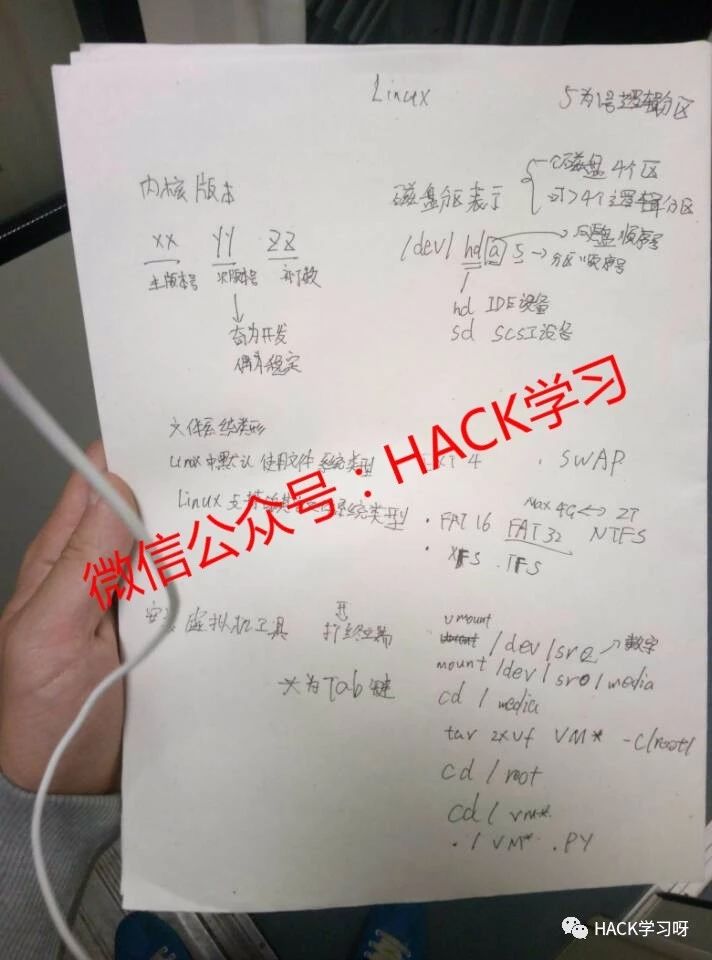 Linux
5为逻辑分区
内核版本
XX YY ZZ
主版本号 次版本号 补丁数
奇为开发
偶为稳定
磁盘分区表示
磁盘 4个区
对>4个 主 逻辑分区
/dev/ hd a 5 → 分区顺序号
磁盘 顺序号
hd IDE设备
sd SCSI设备
文件系统类形
Linux中默认使用文件系统类型 EXT 4 . SWAP
Linux支持 系统类型 . FAT 16 FAT 32 NTFS
Max 4G ↔ 2T
. XFS . TFS
虚拟机工具 打终端
*为Tab键
umount /dev/sr0 → 数字
mount /dev/sr0 /media
cd / media
tar zxvf VM* -C/root/
cd / root
cd / vm*
. / VM* . PY
微信公众号：HACK学习
HACK学习呀